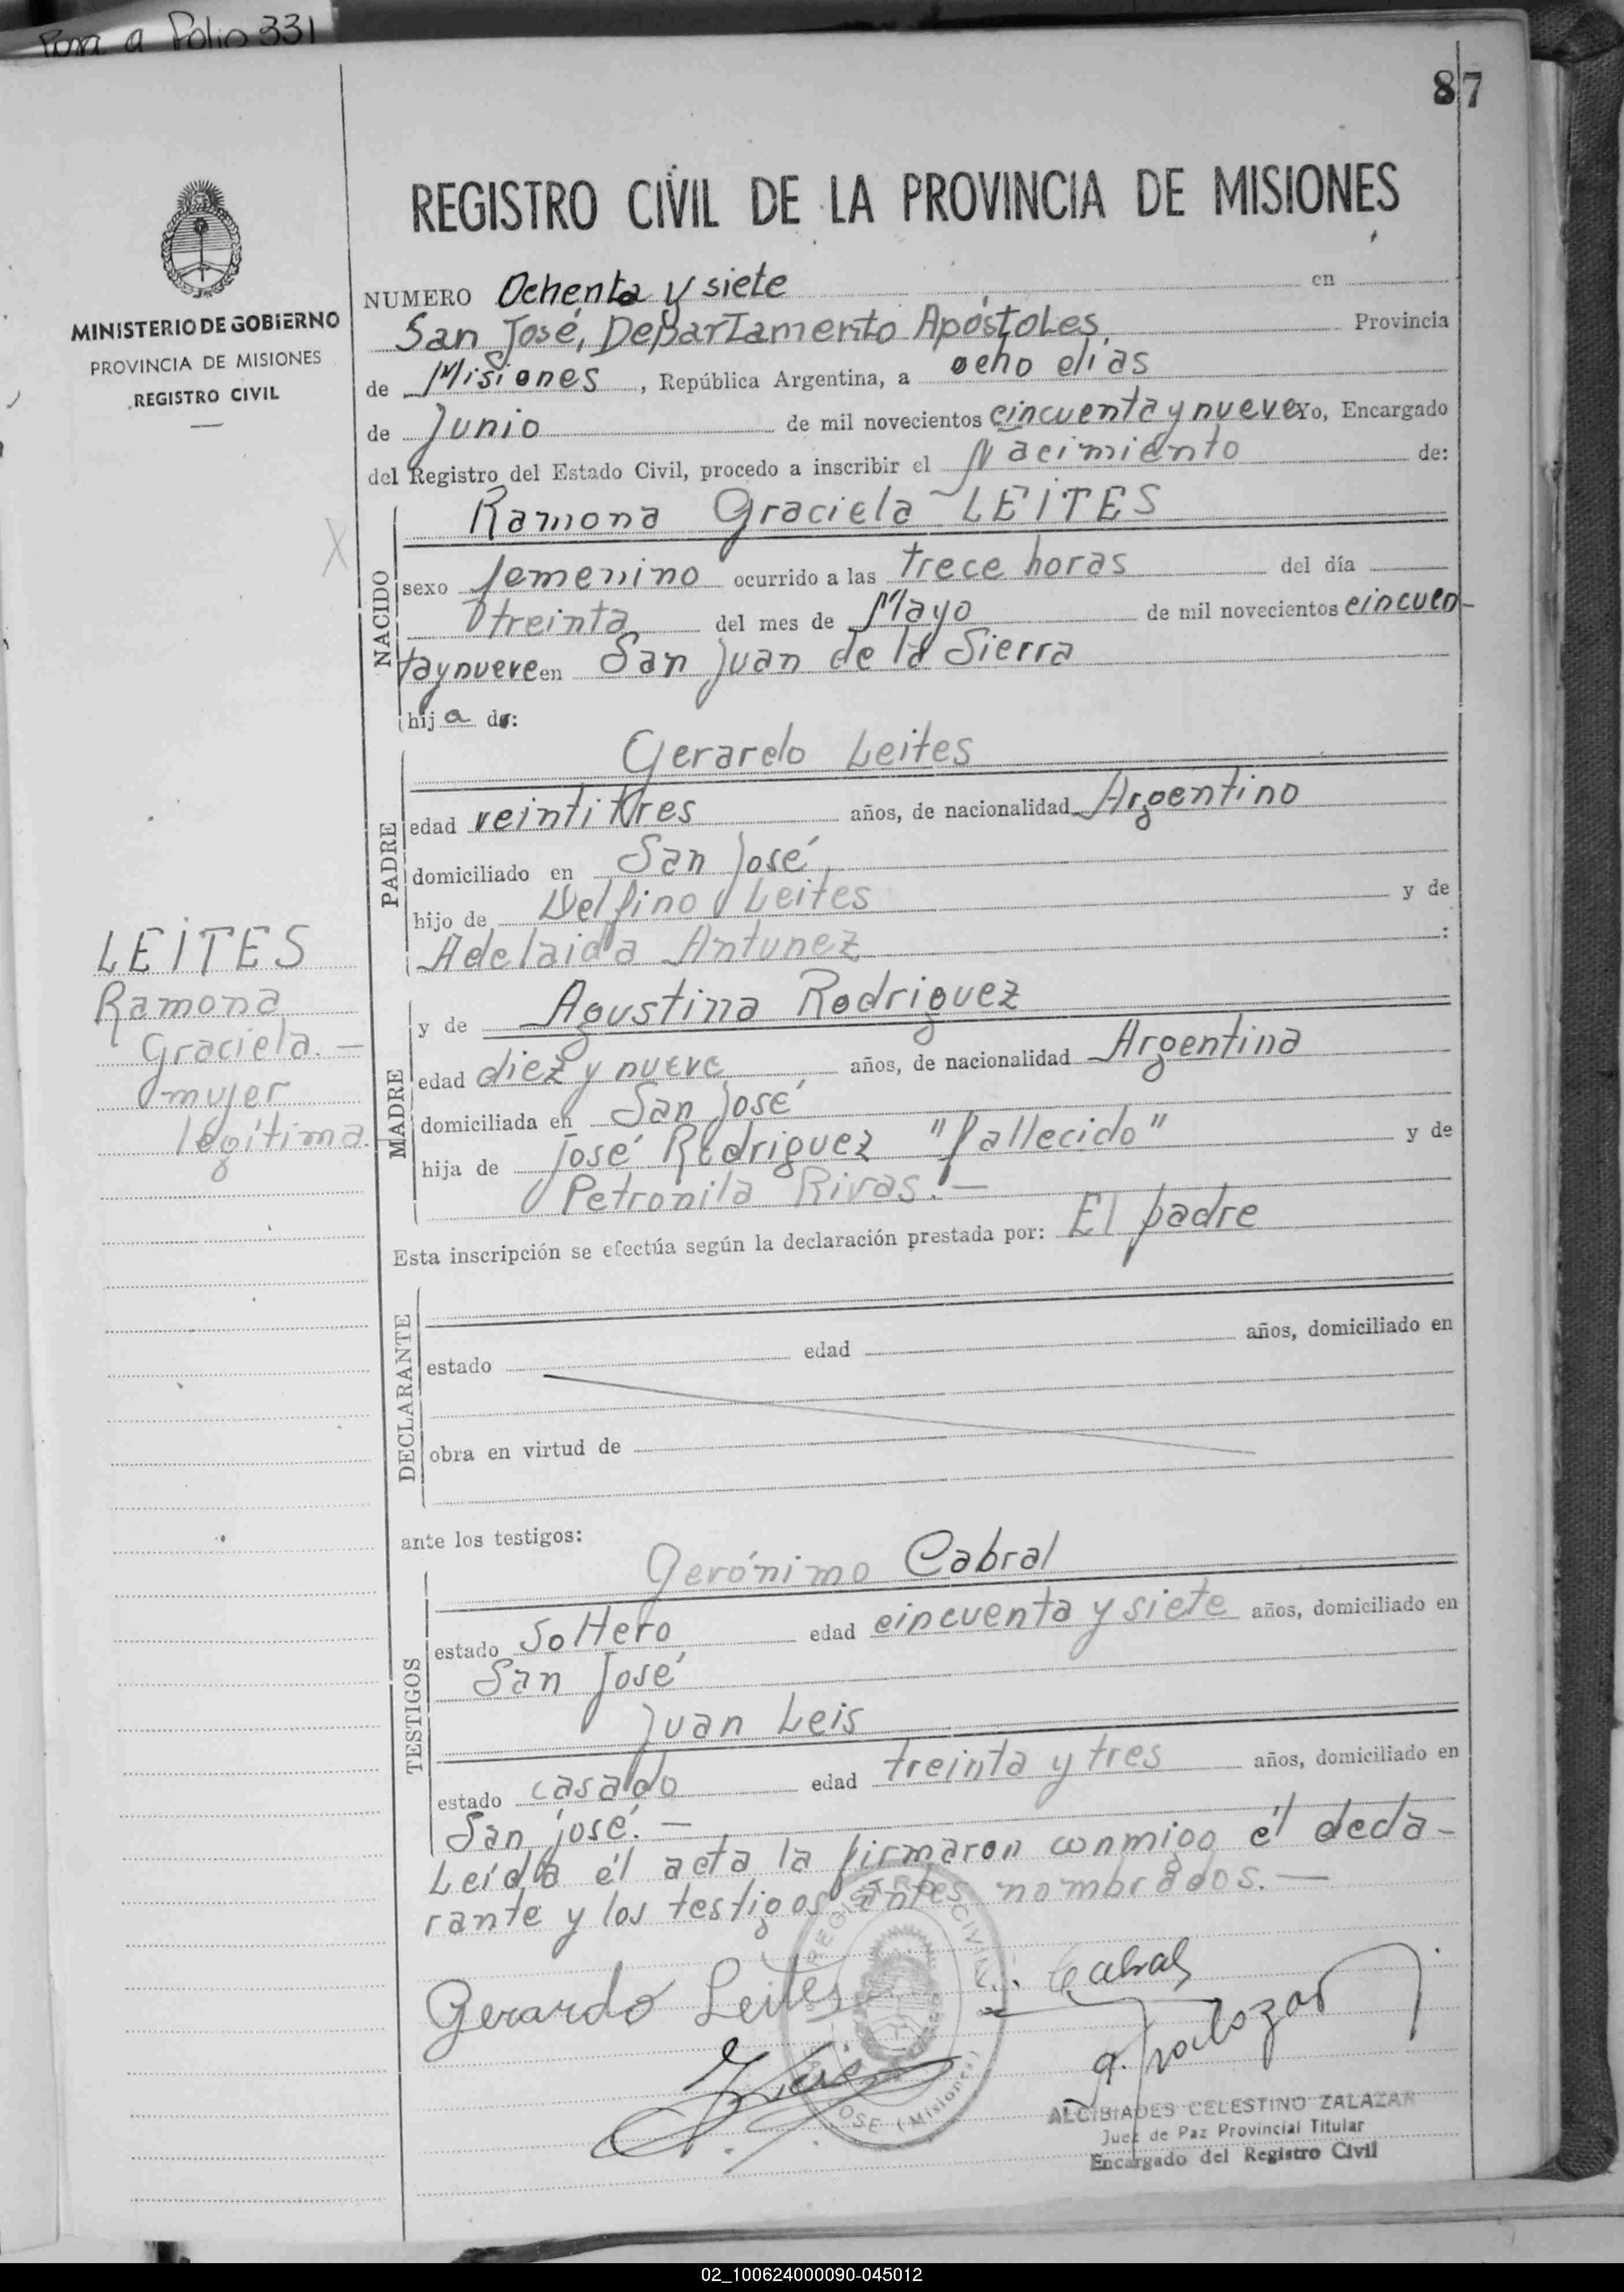 Pasa a Folio 331
87
MINISTERIO DE GOBIERNO
PROVINCIA DE MISIONES
REGISTRO CIVIL
REGISTRO CIVIL DE LA PROVINCIA DE MISIONES
NUMERO Ochenta y siete en
San José, Departamento Apóstoles Provincia
de Misiones, República Argentina, a ocho dias
de Junio de mil novecientos cincuenta y nueve Yo, Encargado
del Registro del Estado Civil, procedo a inscribir el Nacimiento de:
NACIDO
Ramona Graciela LEITES
sexo femenino ocurrido a las trece horas del día
treinta del mes de Mayo de mil novecientos cincuen-
tay nueve en San Juan de la Sierra
hij a de:
PADRE
Gerardo Leites
edad veintitres años, de nacionalidad Argentino
domiciliado en San José
hijo de Delfino Leites y de
Adelaida Antunez :
LEITES
Ramona
Graciela. —
mujer
legítima.
MADRE
y de Agustina Rodriguez
edad diez y nueve años, de nacionalidad Argentina
domiciliada en San José
hija de José Rodriguez "fallecido" y de
Petronila Rivas. —
Esta inscripción se efectúa según la declaración prestada por: El padre
DECLARANTE
estado edad años, domiciliado en
obra en virtud de
ante los testigos:
TESTIGOS
Gerónimo Cabral
estado Soltero edad cincuenta y siete años, domiciliado en
San José
Juan Leis
estado casado edad treinta y tres años, domiciliado en
San josé. —
Leída él acta la firmaron conmigo él decla-
rante y los testigos antes nombrados. —
Gerardo Leites
Cabral
REGISTRO CIVIL
JOSE (Misiones)
ALCIBIADES CELESTINO ZALAZAR
Juez de Paz Provincial Titular
Encargado del Registro Civil
02_100624000090-045012